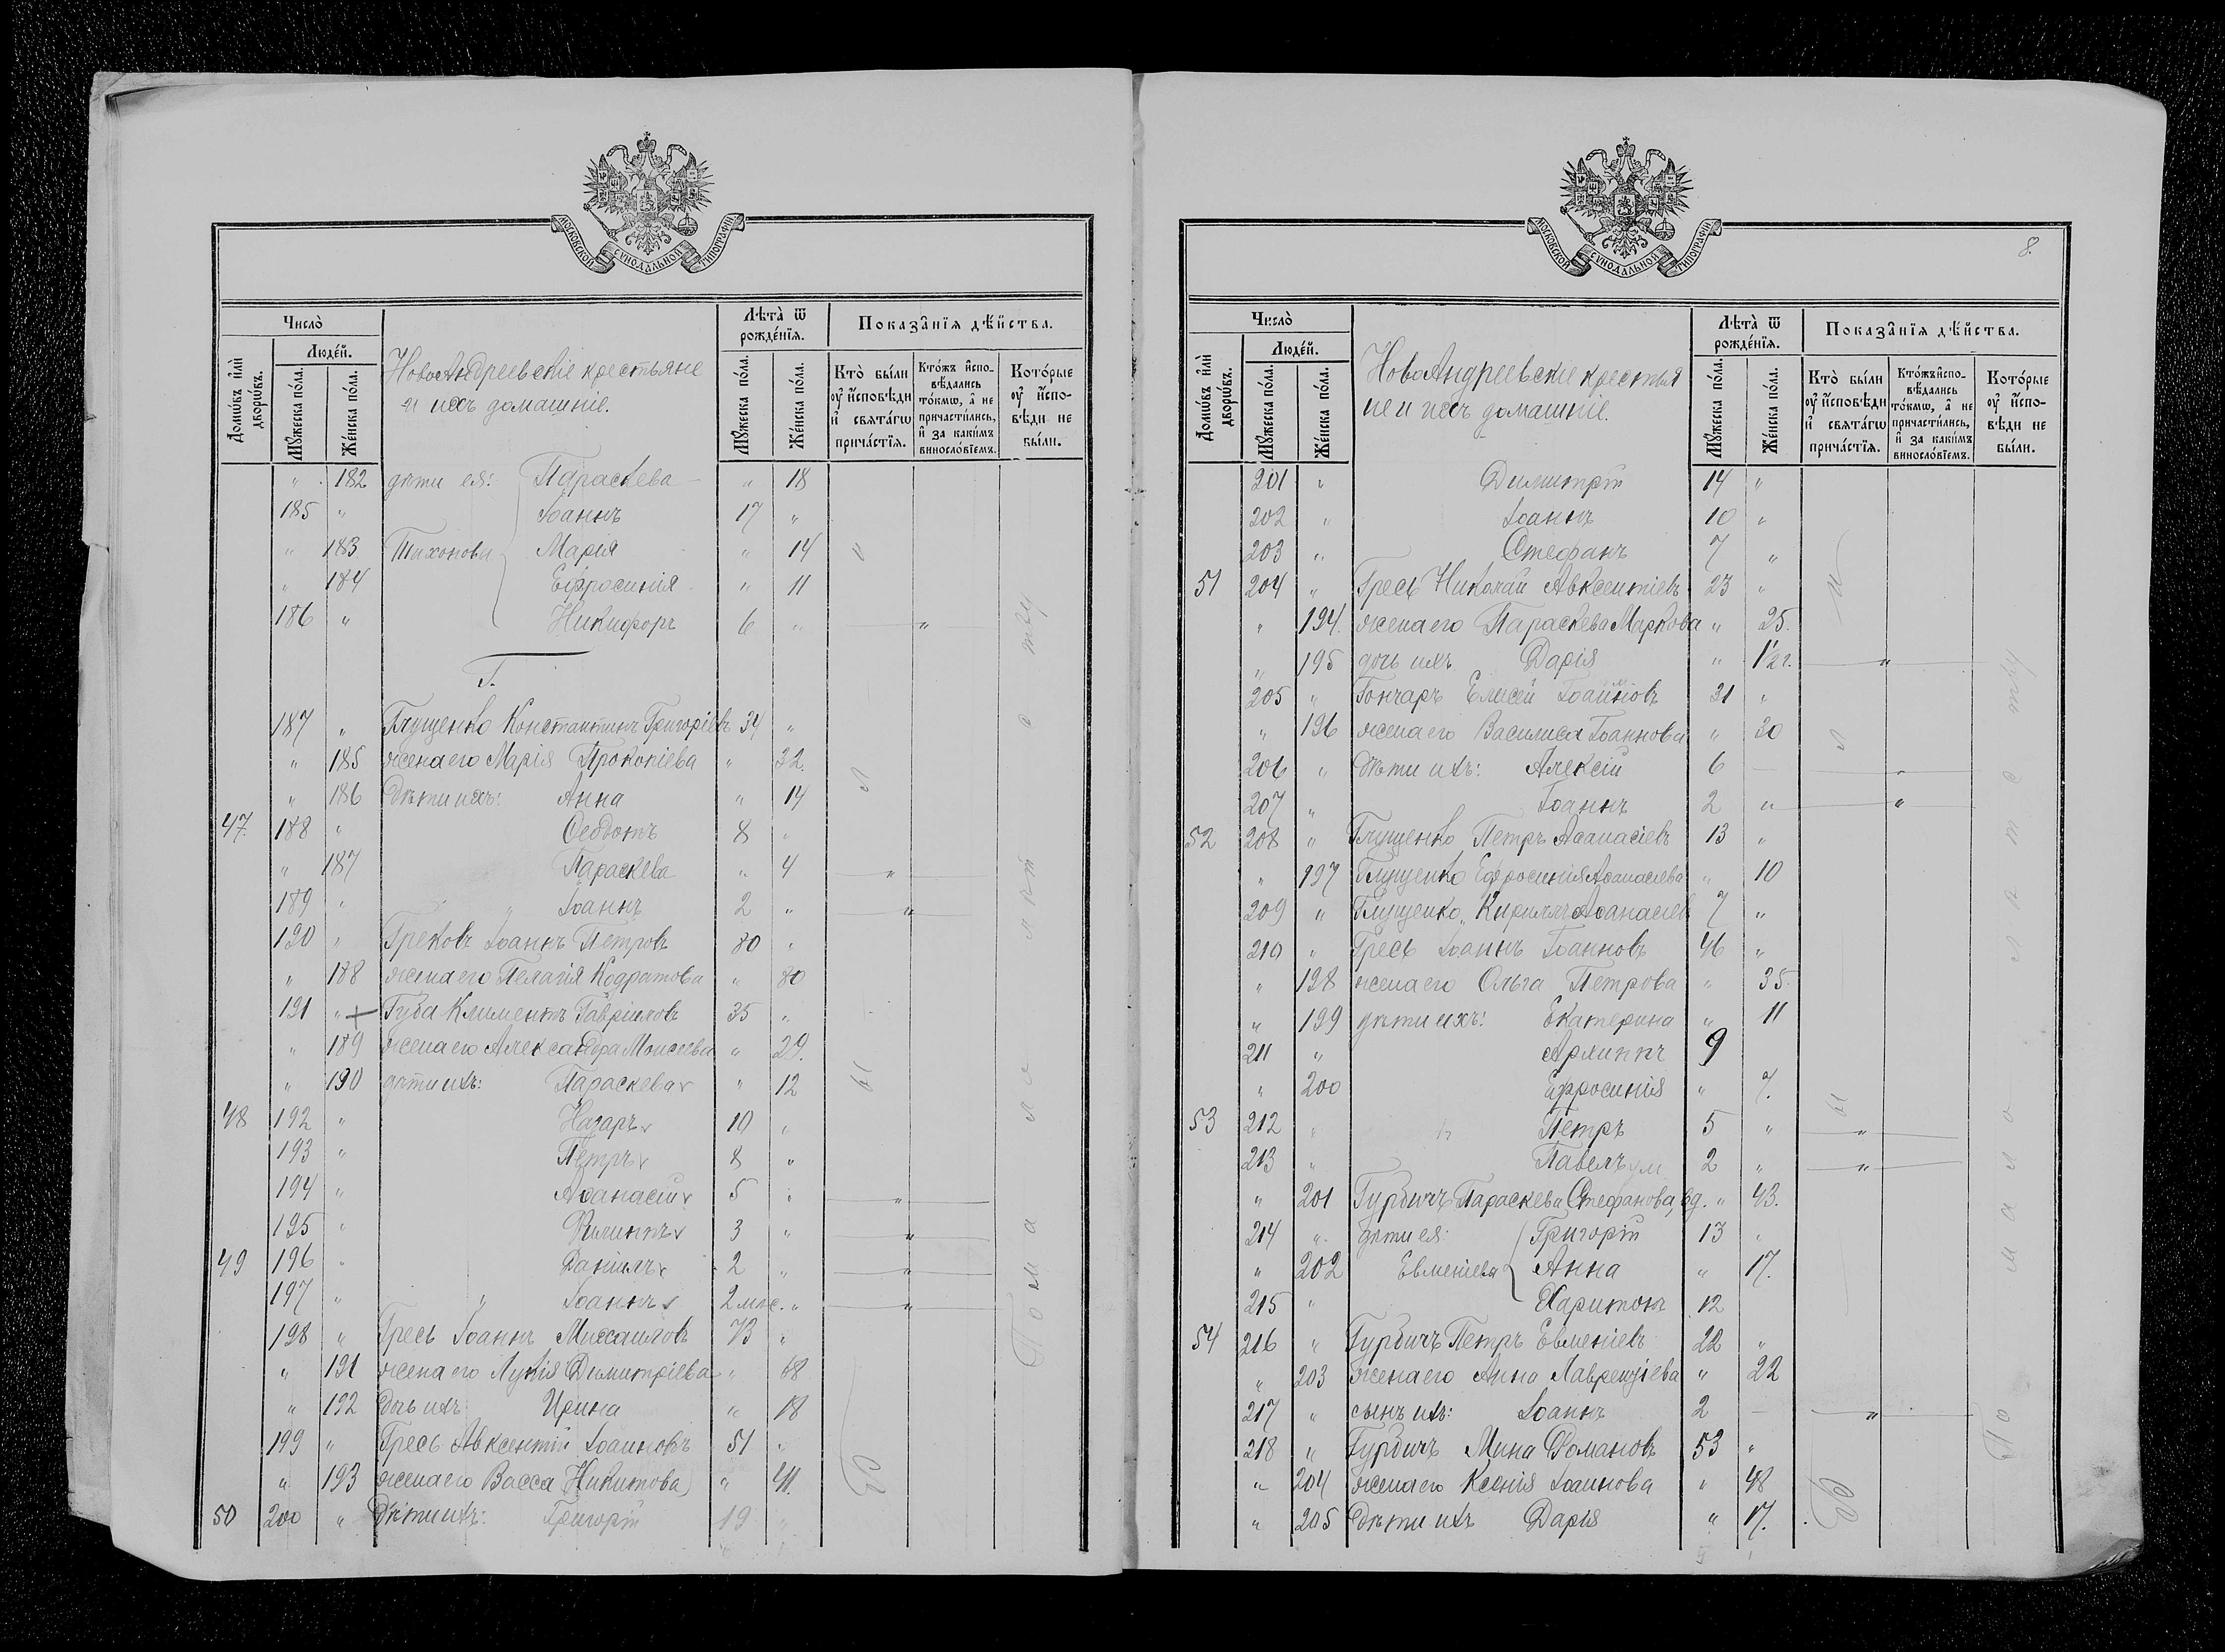 МОСКОВСКОЙ СУНОДАЛЬНОЙ ТИПОГРАФІИ
Число̀
Домѡ́въ и҆лѝ дворѡ́въ.
Люде́й.
Мꙋ́жеска по́ла.
Же́нска по́ла.
НовоАндреевскіе крестьяне
и ихъ домашніе.
Лѣта̀ ѿ рожде́нїѧ.
Мꙋ́жеска по́ла.
Же́нска по́ла.
Показа̑нїѧ дѣ́йства.
Кто̀ бы́ли ᲂу҆ и҆́сповѣди и҆ свѧта́гѡ прича́стїѧ.
Кто́жъ и҆спо-вѣ́дались то́кмѡ, а҆ не причасти́лись, и҆ за каки́мъ винослѡ́вїемъ.
Кото́рые ᲂу҆ и҆́спо-вѣди не бы́ли.
" 182 дѣти ея: Параскева " 18
185 " Іоаннъ 17 "
" 183 Тихоновы Марія " 14 "
" 184 Ефросинія " 11
186 " Никифоръ 6 " "
Г.
187 " Глущенко Константинъ Григоріевъ 34 "
" 185 жена его Марія Прокопіева " 32.
" 186 Дѣти ихъ: Анна " 14
47. 188 " Ѳеодотъ 8 "
" 187 Параскева " 4 "
189 " " Іоаннъ 2 " "
190 " Грековъ Іоаннъ Петровъ 80 "
" 188 жена его Пелагія Кодратова " 80
191 " + Губа Климентъ Гавріиловъ 35 "
" 189 жена его Александра Моисеева " 29.
" 190 дѣти ихъ: Параскева v " 12
48 192 " Назаръ v 10 "
193 " Петръ v 8 "
194 " Аѳанасій v 5 " "
195 " Филиппъ v 3 " "
49 196 " Даніилъ v 2 " "
197 " " Іоаннъ v 2 мѣс. " "
198 " Гресь Іоаннъ Михаиловъ 73 "
" 191 жена его Лукія Димитріева " 68
" 192 дочь ихъ Ирина " 18
199 " Гресь Авксентій Іоанновъ 51 "
" 193 жена его Васса Никитова " 41.
50 200 " Дѣти ихъ: Григорій 19 "
Были
По малолѣтству
МОСКОВСКОЙ СУНОДАЛЬНОЙ ТИПОГРАФІИ
8.
Число̀
Домѡ́въ и҆лѝ дворѡ́въ.
Люде́й.
Мꙋ́жеска по́ла.
Же́нска по́ла.
НовоАндреевскіе крестья
не и ихъ домашніе.
Лѣта̀ ѿ рожде́нїѧ.
Мꙋ́жеска по́ла.
Же́нска по́ла.
Показа̑нїѧ дѣ́йства.
Кто̀ бы́ли ᲂу҆ и҆́сповѣди и҆ свѧта́гѡ прича́стїѧ.
Кто́жъ и҆спо-вѣ́дались то́кмѡ, а҆ не причасти́лись, и҆ за каки́мъ винослѡ́вїемъ.
Кото́рые ᲂу҆ и҆́спо-вѣди не бы́ли.
201 " Димитрій 14 "
202 " Іоаннъ 10 "
203 " Стефанъ 7 "
51 204 " Гресь Николай Авксентіевъ 23 "
" 194. жена его Параскева Маркова " 25.
" 195 дочь ихъ Дарія " 1½ г. "
205 " Гончаръ Елисей Іоанновъ 31 "
" 196 жена его Василиса Іоаннова " 30
206 " Дѣти ихъ: Алексій 6 — "
207 " Іоаннъ 2 " "
52 208 " Глущенко Петръ Аѳанасіевъ 13 "
" 197 Глущенко Ефросинія Аѳанасіева " 10
209 " Глущенко Кириллъ Аѳанасіев 7 "
210 " Гресь Іоаннъ Іоанновъ 46 "
" 198 жена его Ольга Петрова " 35.
" 199 дѣти ихъ: Екатерина " 11
211 " Архиппъ 9
" 200 Ефросинія " 7.
53 212 " Петръ 5 " "
213 " Павелъ ум 2 " "
" 201 Гурбичъ Параскева Стефанова, вд. " 43.
214 " дѣти ея: Григорій 13 "
" 202 Евменіевы Анна " 17.
215 " Харитонъ 12
54 216 " Гурбичъ Петръ Евменіевъ 22 "
" 203 жена его Анна Лаврентіева " 22
217 " сынъ ихъ: Іоаннъ 2 — "
218 " Гурбичъ Мина Романовъ 53 "
" 204 жена его Ксенія Іоаннова " 48
" 205 Дѣти ихъ Дарія " 17.
Были
По малолѣтству